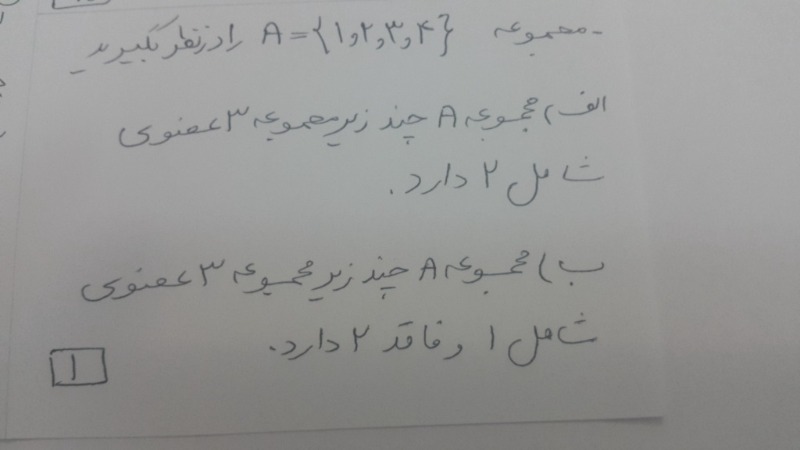 - مجموعه A = {۱,۲,۳,۴} را در نظر بگیرید
الف) مجموعه A چند زیرمجموعه ۳ عضوی
شامل ۲ دارد.
ب) مجموعه A چند زیرمجموعه ۳ عضوی
شامل ۱ و فاقد ۲ دارد.
۱